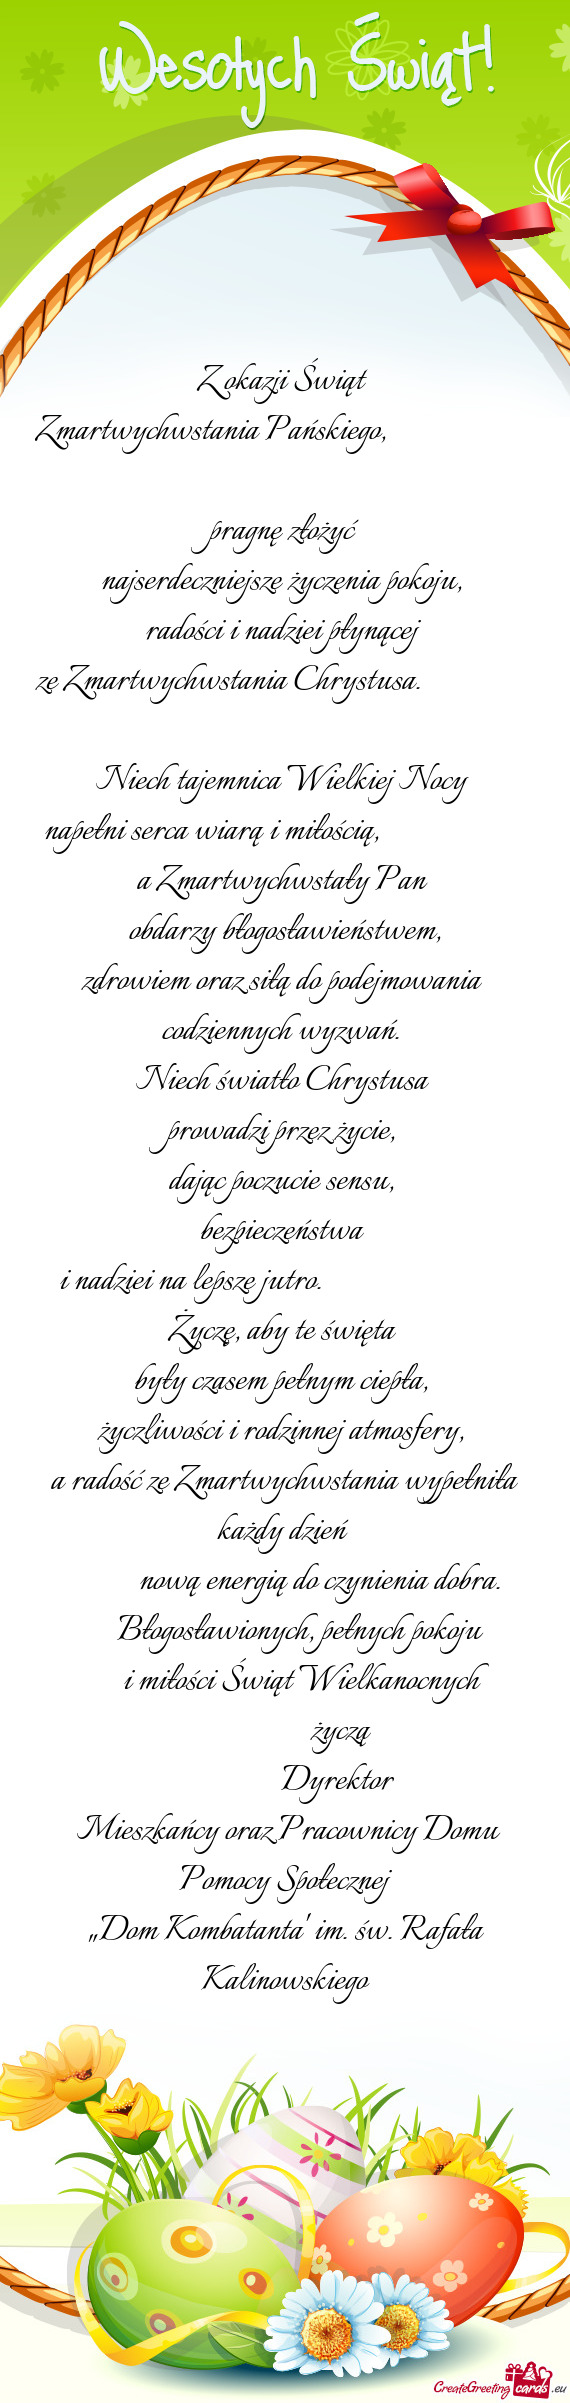 Wesołych Świąt!
Z okazji Świąt
Zmartwychwstania Pańskiego,
pragnę złożyć
najserdeczniejsze życzenia pokoju,
radości i nadziei płynącej
ze Zmartwychwstania Chrystusa.
Niech tajemnica Wielkiej Nocy
napełni serca wiarą i miłością,
a Zmartwychwstały Pan
obdarzy błogosławieństwem,
zdrowiem oraz siłą do podejmowania
codziennych wyzwań.
Niech światło Chrystusa
prowadzi przez życie,
dając poczucie sensu,
bezpieczeństwa
i nadziei na lepsze jutro.
Życzę, aby te święta
były czasem pełnym ciepła,
życzliwości i rodzinnej atmosfery,
a radość ze Zmartwychwstania wypełniła
każdy dzień
nową energią do czynienia dobra.
Błogosławionych, pełnych pokoju
i miłości Świąt Wielkanocnych
życzą
Dyrektor
Mieszkańcy oraz Pracownicy Domu
Pomocy Społecznej
„Dom Kombatanta' im. św. Rafała
Kalinowskiego
CreateGreetingcards.eu